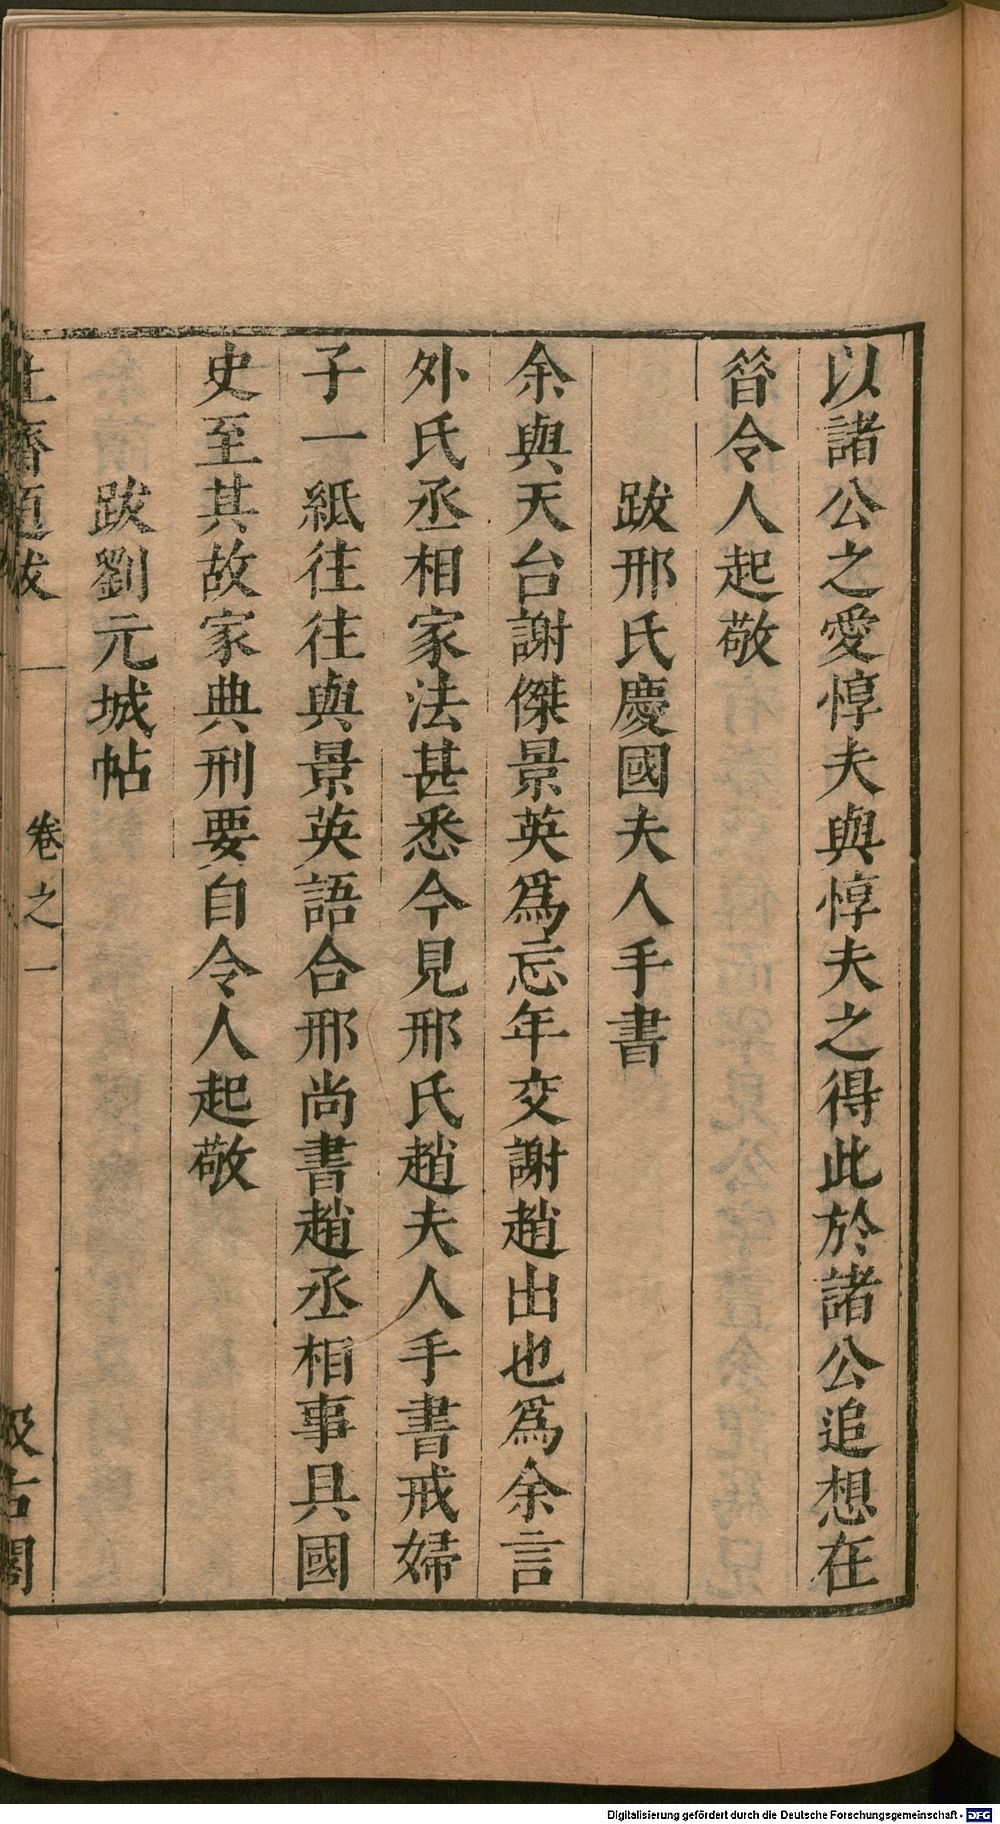 以諸公之愛惇夫與惇夫之得此於諸公追想在
昝令人起敬
跋邢氏慶國夫人手書
余與天台謝傑景英爲忘年交謝趙出也爲余言
外氏丞相家法甚悉今見邢氏趙夫人手書戒婦
子一紙往往與景英語合邢尚書趙丞相事具國
史至其故家典刑要自令人起敬
跋劉元城帖
齋題跋 卷之一 汲古閣
Digitalisierung gefördert durch die Deutsche Forschungsgemeinschaft - DFG